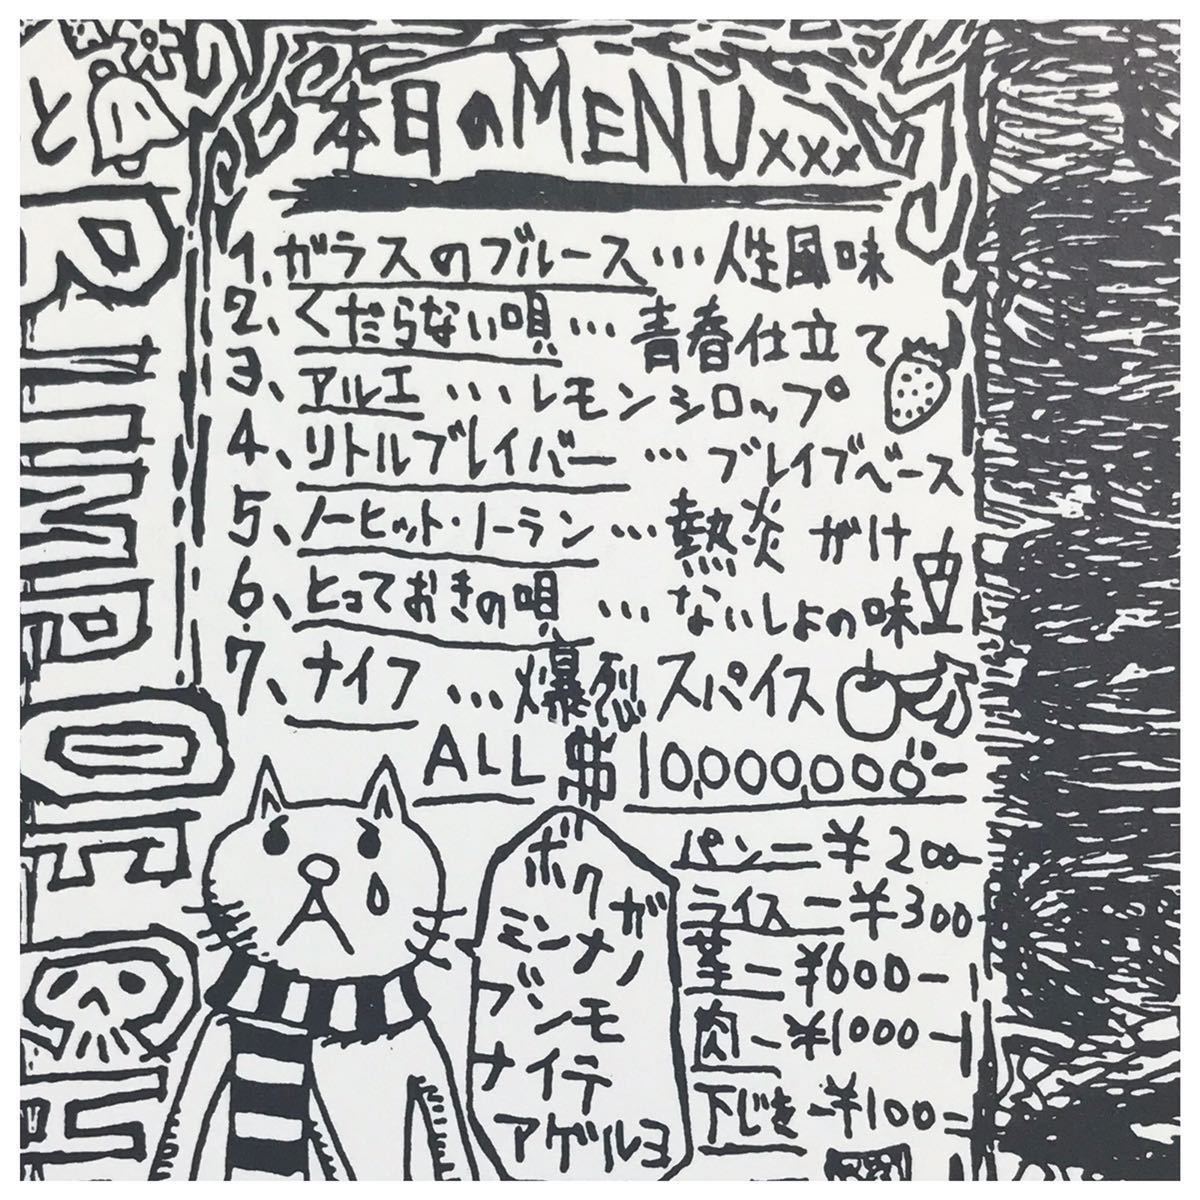 と
本日のMENUxxx
1、ガラスのブルース…人生風味
2、くだらない唄…青春仕立て
3、アルエ…レモンシロップ
4、リトルブレイバー…ブレイブベース
5、ノーヒット・ノーラン…熱炎がけ
6、とっておきの唄…ないしょの味
7、ナイフ…爆烈スパイス
ALL $10,000,000-
ボクガ
ミンナノ
ブンモ
ナイテ
アゲルヨ
パン—¥200-
ライス—¥300
葉—¥600-
肉—¥1000-
下じき—¥100-